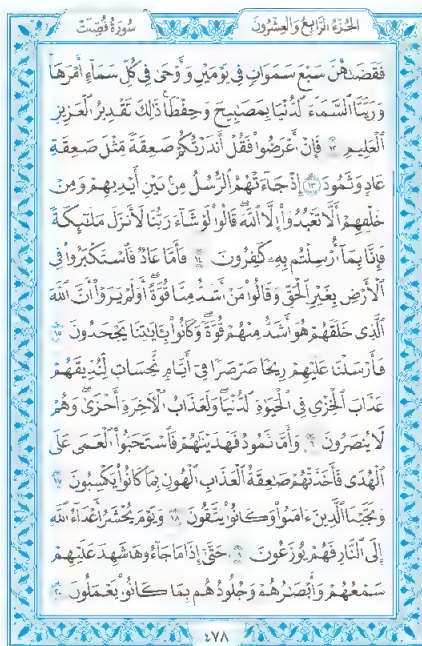 الجزء الرابع والعشرون سورة فصلت
فَقَضَىٰهُنَّ سَبْعَ سَمَٰوَاتٍ فِى يَوْمَيْنِ وَأَوْحَىٰ فِى كُلِّ سَمَآءٍ أَمْرَهَا
وَزَيَّنَّا ٱلسَّمَآءَ ٱلدُّنْيَا بِمَصَٰبِيحَ وَحِفْظًا ذَٰلِكَ تَقْدِيرُ ٱلْعَزِيزِ
ٱلْعَلِيمِ ١٢ فَإِنْ أَعْرَضُوا۟ فَقُلْ أَنذَرْتُكُمْ صَٰعِقَةً مِّثْلَ صَٰعِقَةِ
عَادٍ وَثَمُودَ ١٣ إِذْ جَآءَتْهُمُ ٱلرُّسُلُ مِنۢ بَيْنِ أَيْدِيهِمْ وَمِنْ
خَلْفِهِمْ أَلَّا تَعْبُدُوٓا۟ إِلَّا ٱللَّهَ قَالُوا۟ لَوْ شَآءَ رَبُّنَا لَأَنزَلَ مَلَٰٓئِكَةً
فَإِنَّا بِمَآ أُرْسِلْتُم بِهِۦ كَٰفِرُونَ ١٤ فَأَمَّا عَادٌ فَٱسْتَكْبَرُوا۟ فِى
ٱلْأَرْضِ بِغَيْرِ ٱلْحَقِّ وَقَالُوا۟ مَنْ أَشَدُّ مِنَّا قُوَّةً أَوَلَمْ يَرَوْا۟ أَنَّ ٱللَّهَ
ٱلَّذِى خَلَقَهُمْ هُوَ أَشَدُّ مِنْهُمْ قُوَّةً وَكَانُوا۟ بِـَٔايَٰتِنَا يَجْحَدُونَ ١٥
فَأَرْسَلْنَا عَلَيْهِمْ رِيحًا صَرْصَرًا فِىٓ أَيَّامٍ نَّحِسَاتٍ لِّنُذِيقَهُمْ
عَذَابَ ٱلْخِزْىِ فِى ٱلْحَيَوٰةِ ٱلدُّنْيَا وَلَعَذَابُ ٱلْءَاخِرَةِ أَخْزَىٰ وَهُمْ
لَا يُنصَرُونَ ١٦ وَأَمَّا ثَمُودُ فَهَدَيْنَٰهُمْ فَٱسْتَحَبُّوا۟ ٱلْعَمَىٰ عَلَى
ٱلْهُدَىٰ فَأَخَذَتْهُمْ صَٰعِقَةُ ٱلْعَذَابِ ٱلْهُونِ بِمَا كَانُوا۟ يَكْسِبُونَ ١٧
وَنَجَّيْنَا ٱلَّذِينَ ءَامَنُوا۟ وَكَانُوا۟ يَتَّقُونَ ١٨ وَيَوْمَ يُحْشَرُ أَعْدَآءُ ٱللَّهِ
إِلَى ٱلنَّارِ فَهُمْ يُوزَعُونَ ١٩ حَتَّىٰٓ إِذَا مَا جَآءُوهَا شَهِدَ عَلَيْهِمْ
سَمْعُهُمْ وَأَبْصَٰرُهُمْ وَجُلُودُهُم بِمَا كَانُوا۟ يَعْمَلُونَ ٢٠
٤٧٨